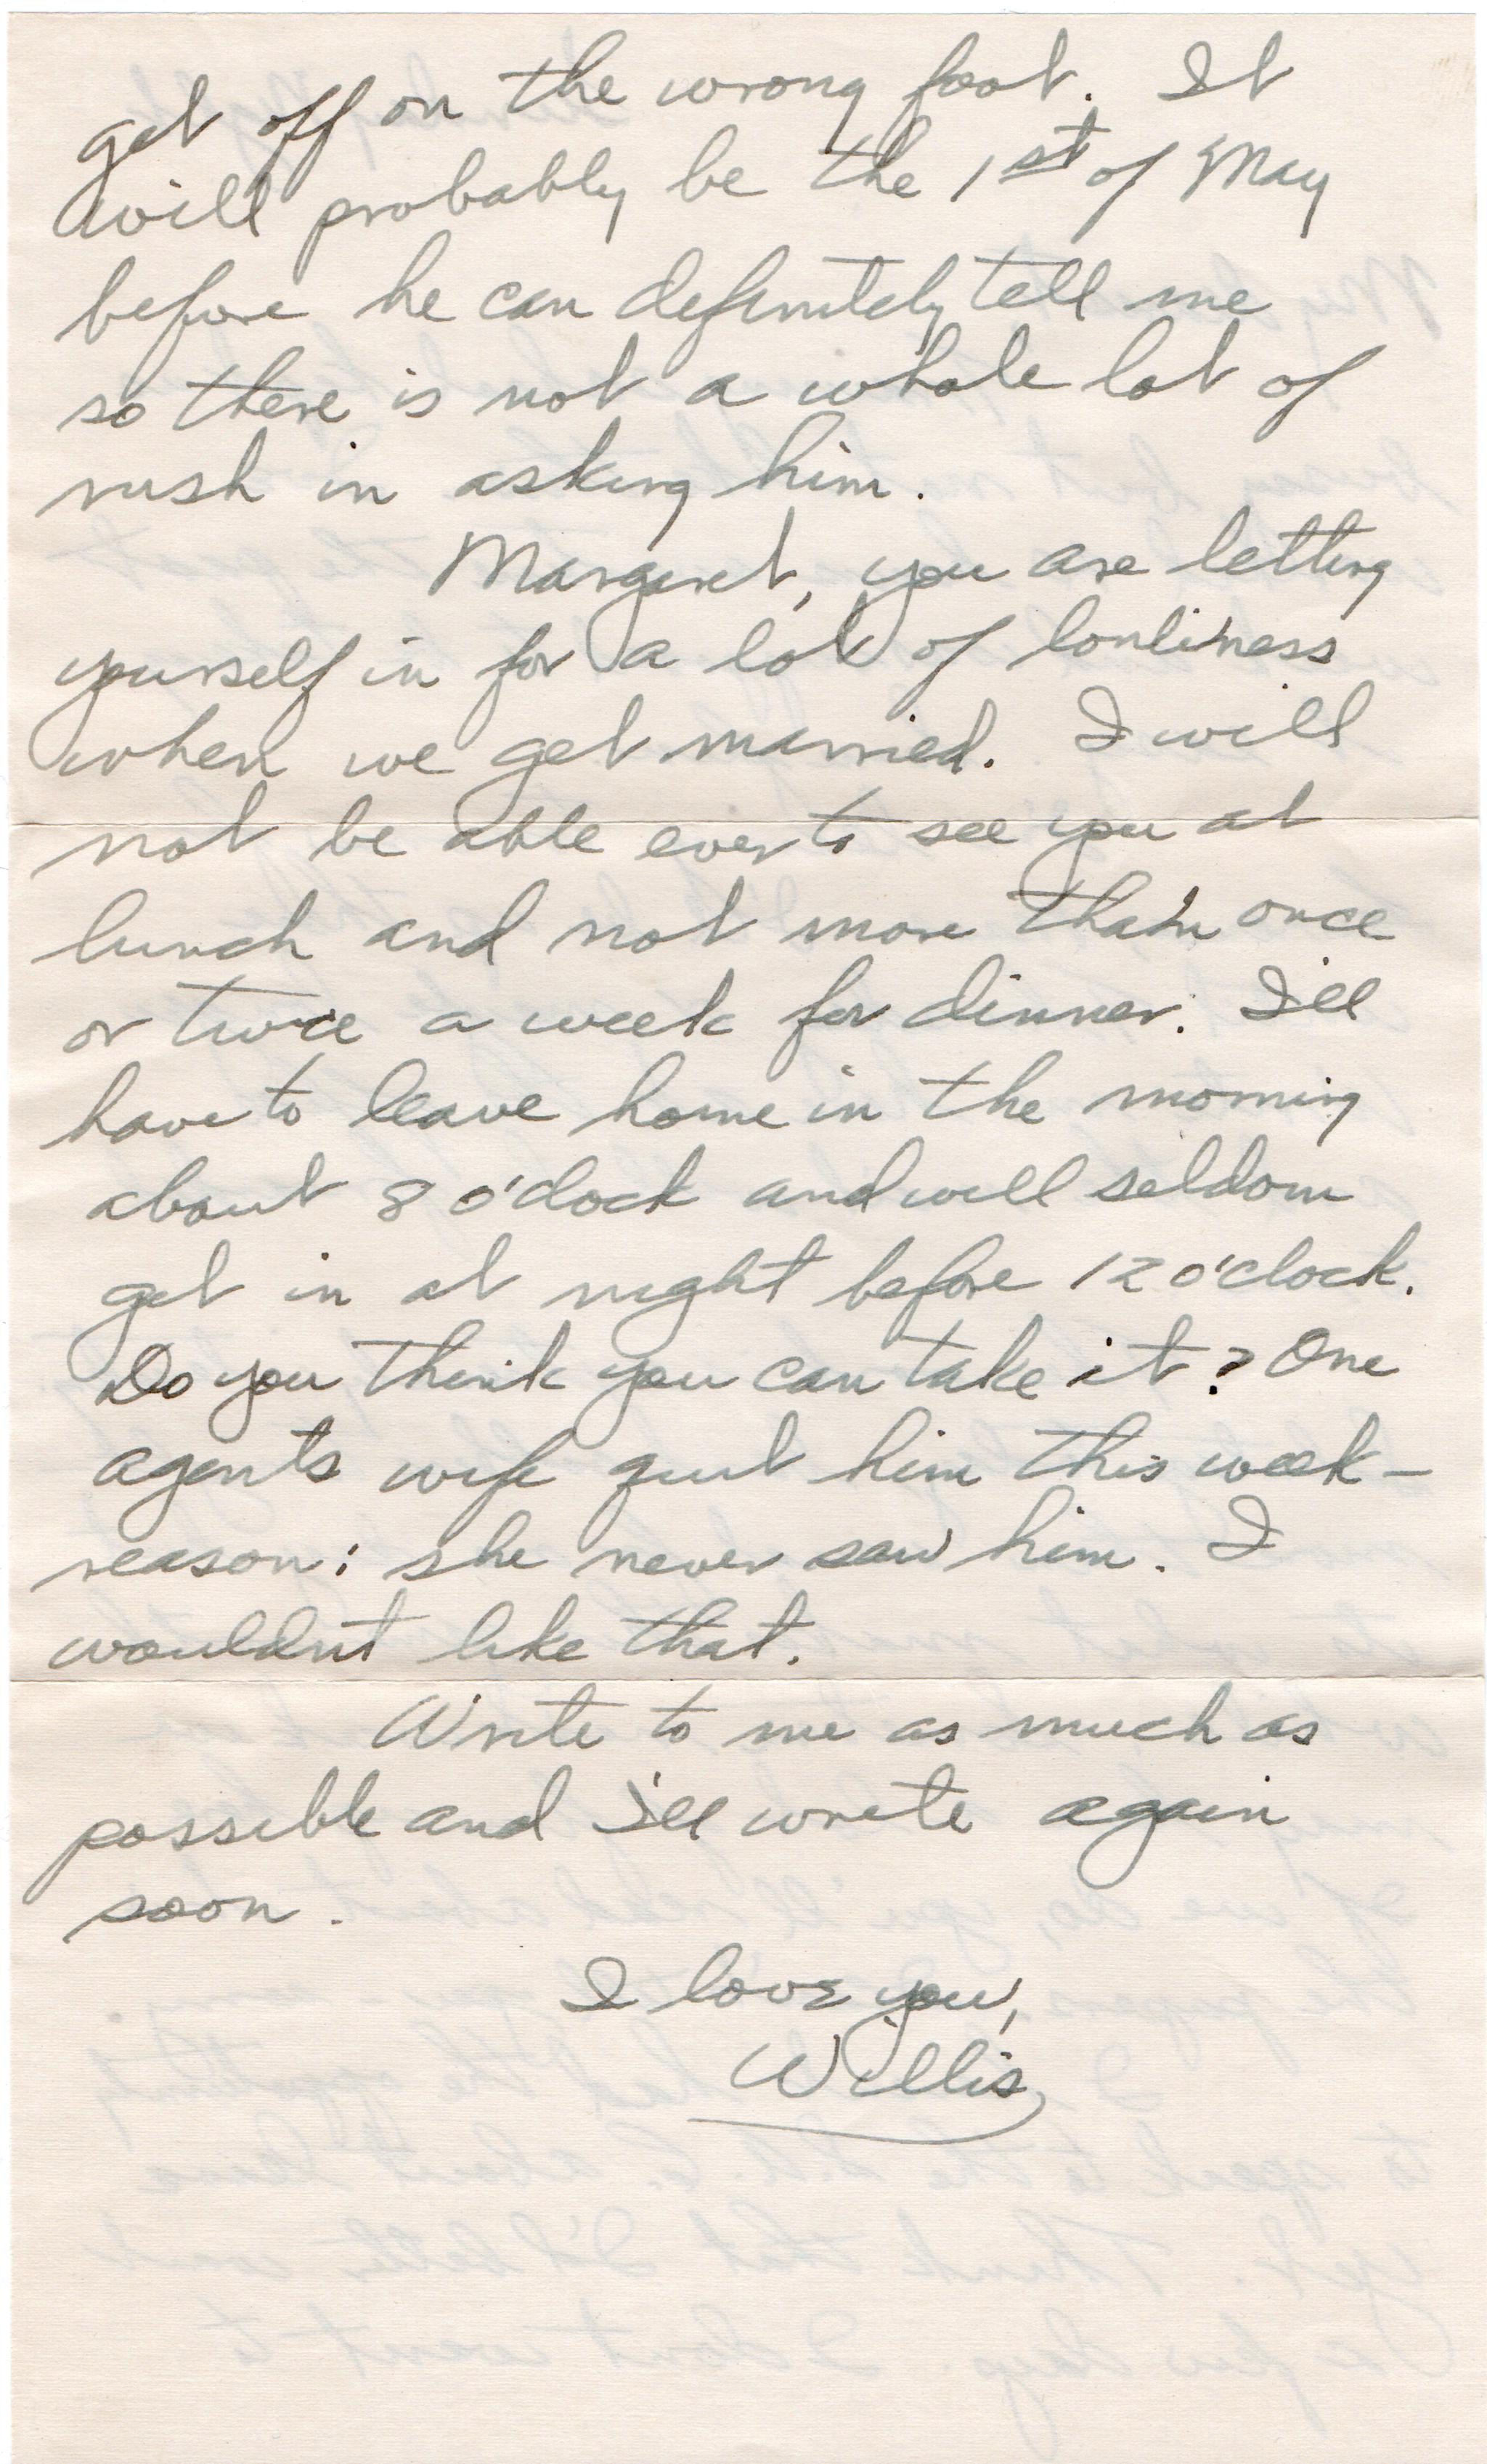 get off on the wrong foot. It
will probably be the 1st of May
before he can definitely tell me
so there is not a whole lot of
rush in asking him.
Margaret, you are letting
yourself in for a lot of lonliness
when we get married. I will
not be able ever to see you at
lunch and not more than once
or twice a week for dinner. I'll
have to leave home in the morning
about 8 o'clock and will seldom
get in at night before 12 o'clock.
Do you think you can take it? One
agents wife quit him this week -
reason: she never saw him. I
wouldn't like that.
Write to me as much as
possible and I'll write again
soon.
I love you,
Willis